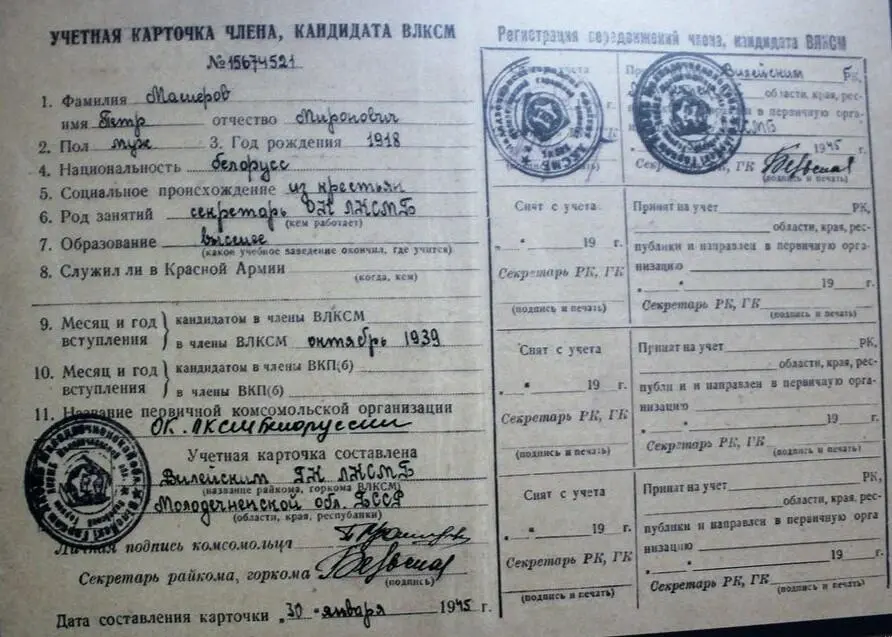 УЧЕТНАЯ КАРТОЧКА ЧЛЕНА, КАНДИДАТА ВЛКСМ
№15674521
1. Фамилия Машеров
имя Петр отчество Миронович
2. Пол муж 3. Год рождения 1918
4. Национальность белорусс
5. Социальное происхождение из крестьян
6. Род занятий секретарь ОК ЛКСМБ
(кем работает)
7. Образование высшее
(какое учебное заведение окончил, где учится)
8. Служил ли в Красной Армии
(когда, кем)
9. Месяц и год вступления
кандидатом в члены ВЛКСМ
в члены ВЛКСМ октябрь 1939
10. Месяц и год вступления
кандидатом в члены ВКП(б)
в члены ВКП(б)
11. Название первичной комсомольской организации
ОК. ЛКСМ Белоруссии
Учетная карточка составлена
Вилейским ГК ЛКСМБ
(название райкома, горкома ВЛКСМ)
Молодечненской обл. БССР
(области, края, республики)
Личная подпись комсомольца
Секретарь райкома, горкома
(подпись)
Дата составления карточки „30 " января 1945 г.
Регистрация передвижений члена, кандидата ВЛКСМ
учета
Вилейским РК,
области, края, рес-
в первичную орга-
1945 г.
Секретарь РК, ГК
(подпись и печать)
Снят с учета
„ " 19 г.
Секретарь РК, ГК
(подпись и печать)
Принят на учет РК,
области, края, рес-
публики и направлен в первичную орга-
низацию
„ " 19 г.
Секретарь РК, ГК
(подпись и печать)
Снят с учета
„ " 19 г.
Секретарь РК, ГК
(подпись и печать)
Принят на учет РК,
области, края, рес-
публи и и направлен в первичную орга-
низацию
„ " 19 г.
Секретарь РК, ГК
(подпись и печать)
Снят с учета
„ " 19 г.
Секретарь РК, ГК
(подпись и печать)
Принят на учет РК,
области, края, рес-
публики и направлен в первичную орга
низацию
„ " 19 г.
Секретарь РК, ГК
(подпись и печать)